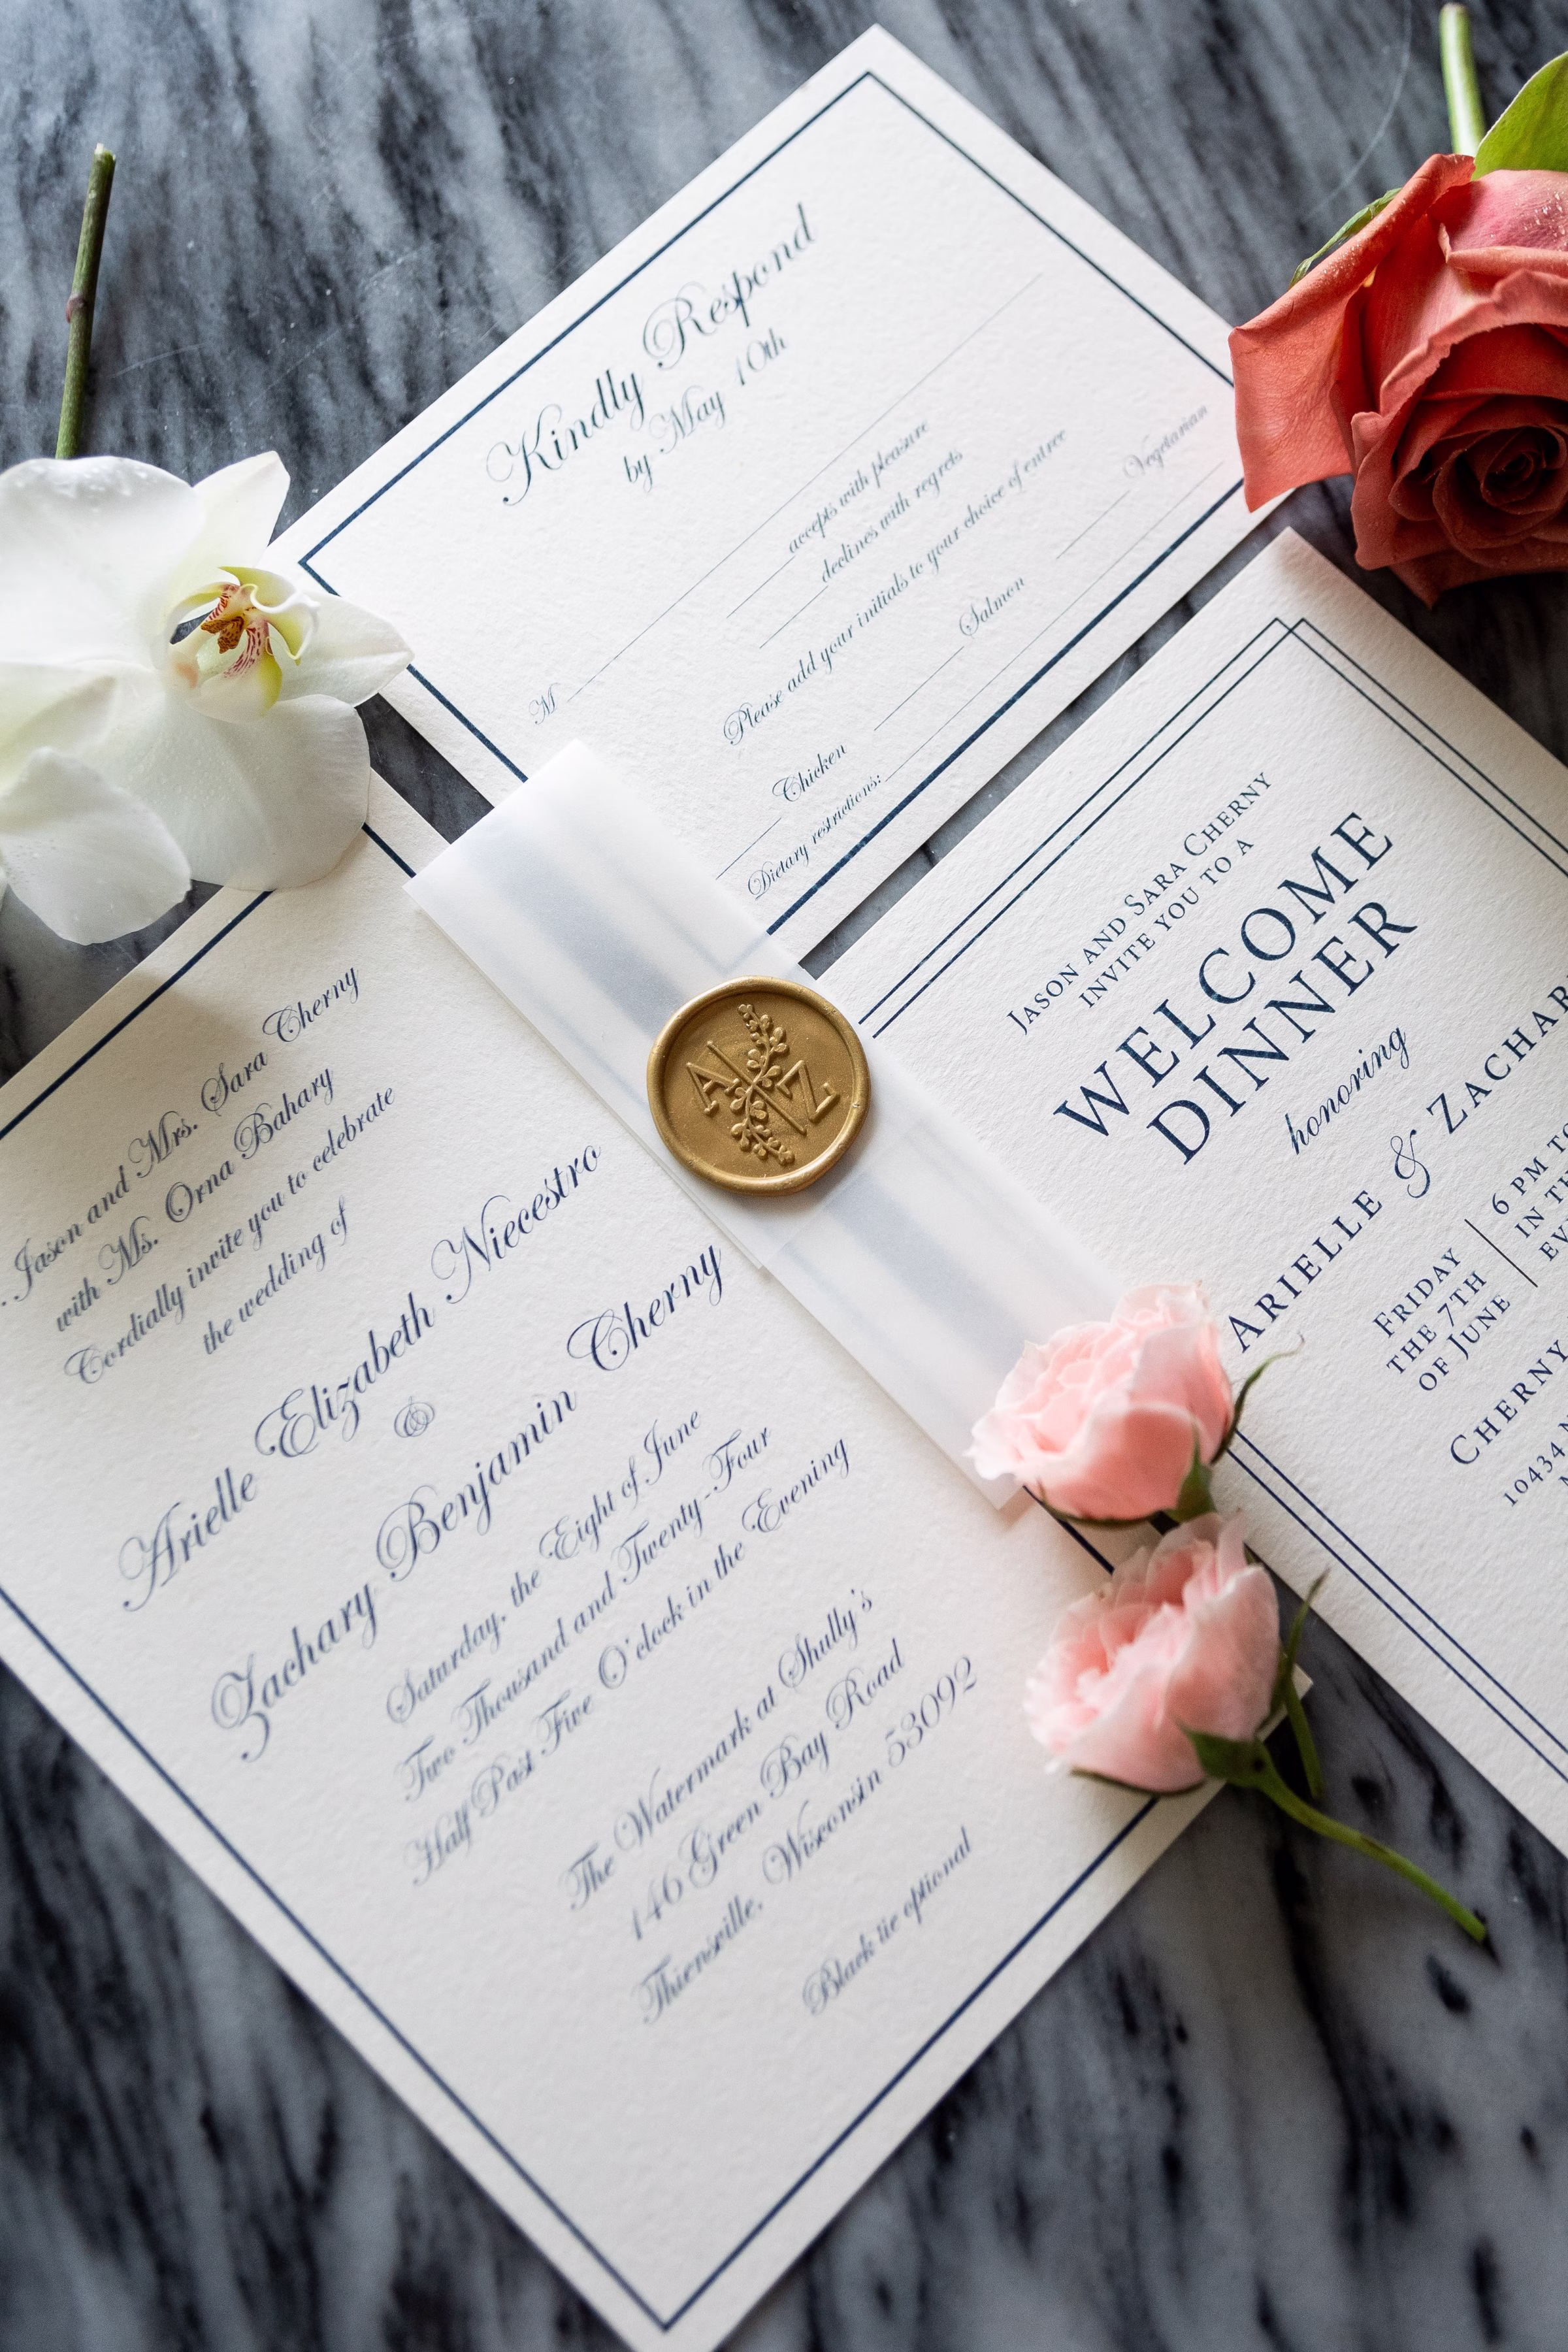 Kindly Respond
by May 10th
M
accepts with pleasure
declines with regrets
Please add your initials to your choice of entree
Chicken Salmon Vegetarian
Dietary restrictions:
A Z
Jason and Mrs. Sara Cherny
with Ms. Orna Bahary
Cordially invite you to celebrate
the wedding of
Arielle Elizabeth Niecestro
&
Zachary Benjamin Cherny
Saturday, the Eight of June
Two Thousand and Twenty-Four
Half Past Five O'clock in the Evening
The Watermark at Shully's
146 Green Bay Road
Thiensville, Wisconsin 53092
Black tie optional
JASON AND SARA CHERNY
INVITE YOU TO A
WELCOME
DINNER
honoring
ARIELLE & ZACHAR
FRIDAY
THE 7TH
OF JUNE
6 PM TO
IN TH
EV
CHERNY
10434